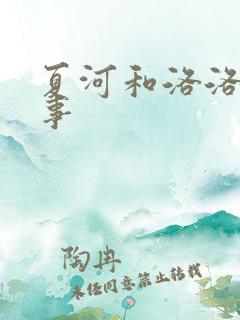 夏河和洛洛
事
陶冉
未经同意禁止转载